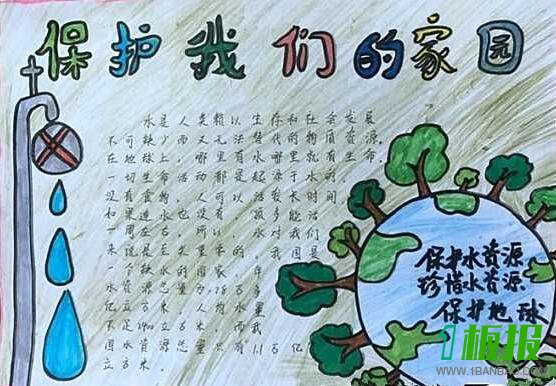 保护我们的家园
水是人类赖以生存和社会发展
不可缺少而又无法替代的物质资源。
在地球上哪里有水哪里就有生命，
一切生命活动都是起源于水的
没有食物，人可以活 时间
水也没有，顶多能活
一周左右。所以，水对我们
来说是至关重要的，我国是
一个缺水的国家，
水资源总量
亿立方米
立方米
国水资源总量只有1.1万亿
立方米。
保护水资源
珍惜水资源
保护地球
1板报
WWW.1BANBAO.COM